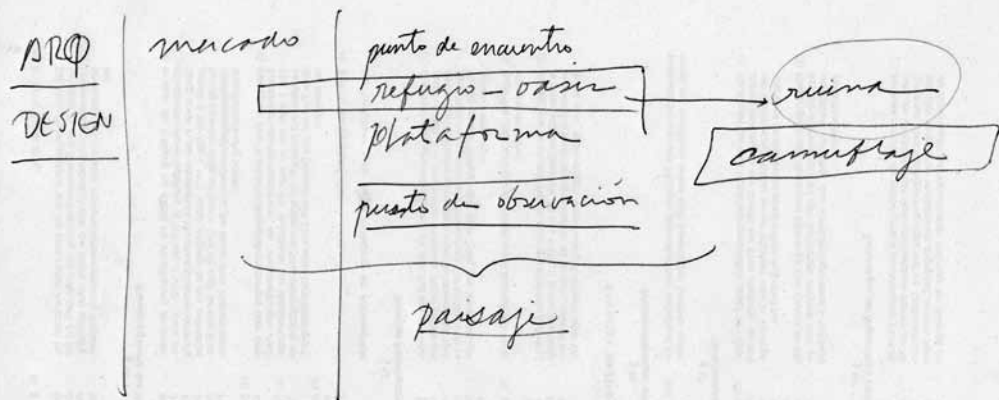 ARQ
DESIGN
mercado
punto de encuentro
refugio - oasis
plataforma
puesto de observación
ruina
camuflaje
paisaje